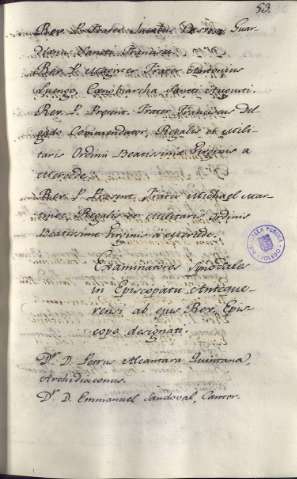 53.
Rev. P. Frater Guar-
diano Sancti Francisci
Rev. P. Magister Frater Antonius
Luengo, Cenobiarcha Sancti Augusti.
Rev. P. Frater Franciscus Del-
gado Comendator, Regalis et Mili-
taris Ordinis Beatissimæ Virginis a
Mercede.
Rev. P. Present. Frater Michael Mar-
tinez, Regalis et Militaris Ordinis
Beatissimæ Virginis a Mercede.
Examinadores Synodales
in Episcopatu Anteque-
rensi ab ejus Rev. Epis-
copo designati.
Dr. D. Petrus Alcantara Quintana,
Archidiaconus.
Dr. D. Emmanuel Sandoval, Cantor.